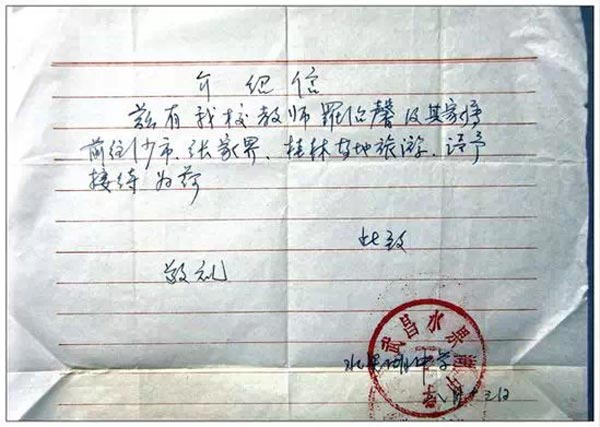 介绍信
兹有我校教师罗伯馨及其家属
前往沙市、张家界、桂林等地旅游、请予
接待为荷
此致
敬礼
水果湖中学
武昌水果湖